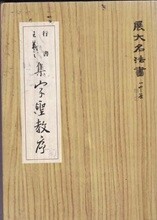 展大名法書
行書
王羲之
集字聖教序